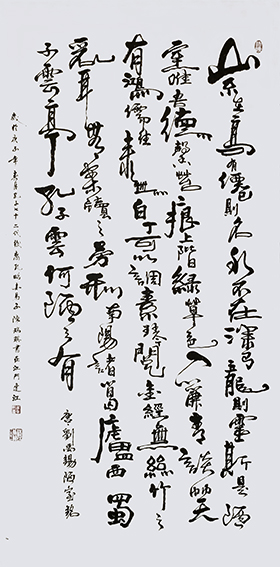 山不在高有僊則名水不在深有龍則靈斯是陋
室唯吾德馨苔痕上階綠草色入簾青談笑
有鴻儒往來無白丁可以調素琴閱金經無絲竹之
亂耳無案牘之勞形南陽諸葛廬西蜀
子雲亭孔子雲何陋之有
唐劉禹錫陋室銘